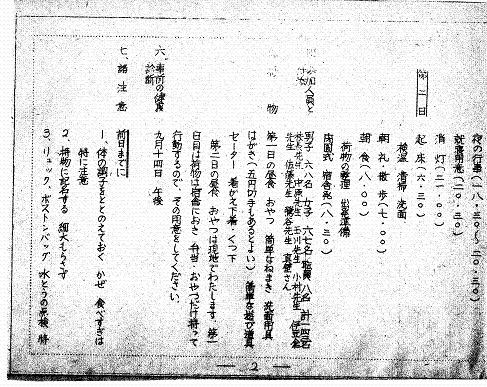 夜の行事(一八・三〇～二〇・三〇)
就寝用意(二〇・三〇)
消灯(二一・〇〇)
第二日
起床(六・三〇)
検温 清掃 洗面
朝礼 散歩(七・〇〇)
朝食(八・〇〇)
荷物の整理 出発準備
閉園式 宿舎発(八・三〇)
参加人員と
男子 六八名 女子 六七名 職員 八名 計一四三名
先生 佐藤先生 先生 真壁さん
物
第一日の昼食 おやつ 簡単なねまき 洗面用具
はがき(五円切手もあるとよい) 簡単な遊び道具
セーター 着がえ下着・くつ下
第二日の昼食 おやつは現地でわたします。第一
日目は荷物は宿舎におき 弁当 おやつだけ持って
行動するので、その用意をしてください。
六、事前の健康診断
九月十四日 午後
七、諸注意
前日までに
1、体の調子をととのえておく かぜ 食べすぎは
特に注意
2、持物に記名する 細大もらさず
3、リュック、ボストンバッグ 水とうの点検 特
— 2 —